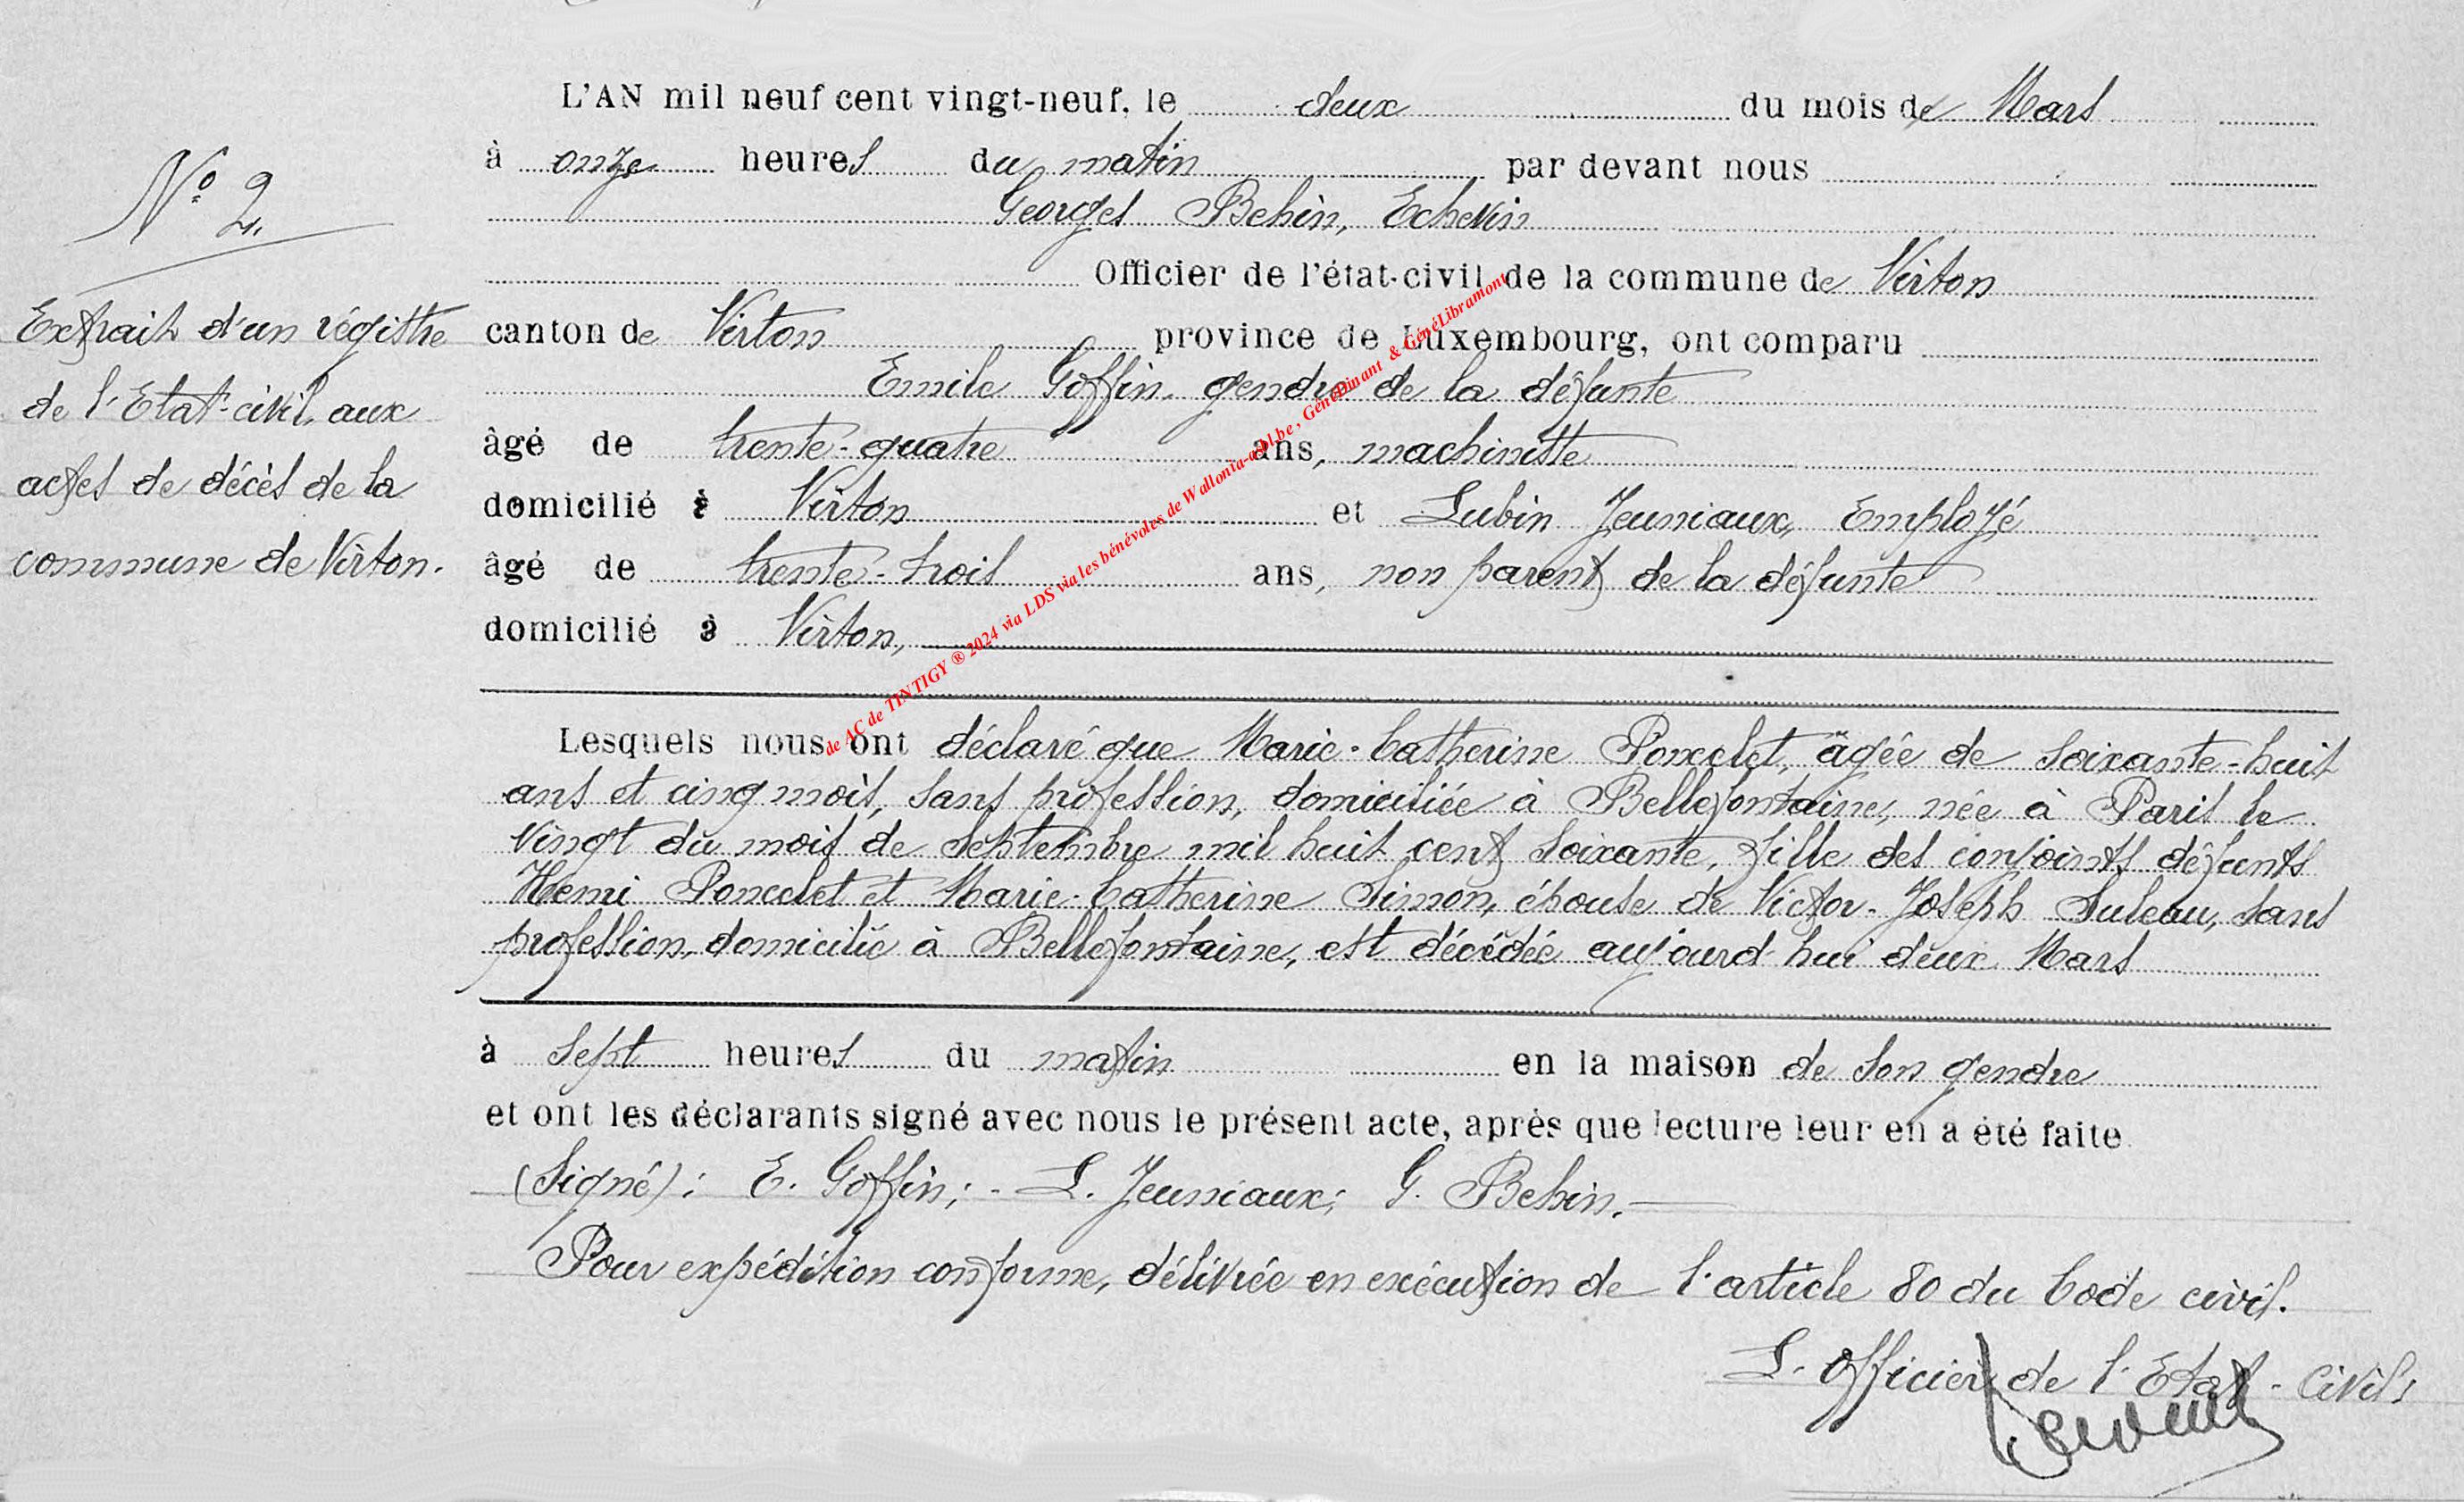 L'AN mil neuf cent vingt-neuf, le deux du mois de Mars
à onze heures du matin par devant nous
Georges Behin, Echevin
Officier de l'état-civil de la commune de Virton
canton de Virton province de Luxembourg, ont comparu
Emile Goffin, gendre de la défunte
âgé de trente-quatre ans, machiniste
domicilié à Virton et Lubin Jeuniaux, Employé
âgé de trente-trois ans, non parent de la défunte
domicilié à Virton,
Lesquels nous ont déclaré que Marie-Catherine Poncelet, âgée de soixante-huit
ans et cinq mois, sans profession, domiciliée à Bellefontaine, née à Paris le
vingt du mois de Septembre mil huit cent soixante, fille des conjoints défunts
Henri Poncelet et Marie-Catherine Simon, épouse de Victor-Joseph Suleau, sans
profession, domicilié à Bellefontaine, est décédée aujourd'hui deux Mars
à sept heures du matin en la maison de son gendre
et ont les déclarants signé avec nous le présent acte, après que lecture leur en a été faite
(Signé): E. Goffin; - L. Jeuniaux; G. Behin.
Pour expédition conforme, délivrée en exécution de l'article 80 du Code civil.
L'officier de l'Etat-Civil,
N° 2.
Extrait d'un régistre
de l'Etat-civil, aux
actes de décès de la
commune de Virton.
de AC de TINTIGY ® 2024 via LDS via les bénévoles de Wallonia-asbl.be , GénéDinant & GénéLibramont